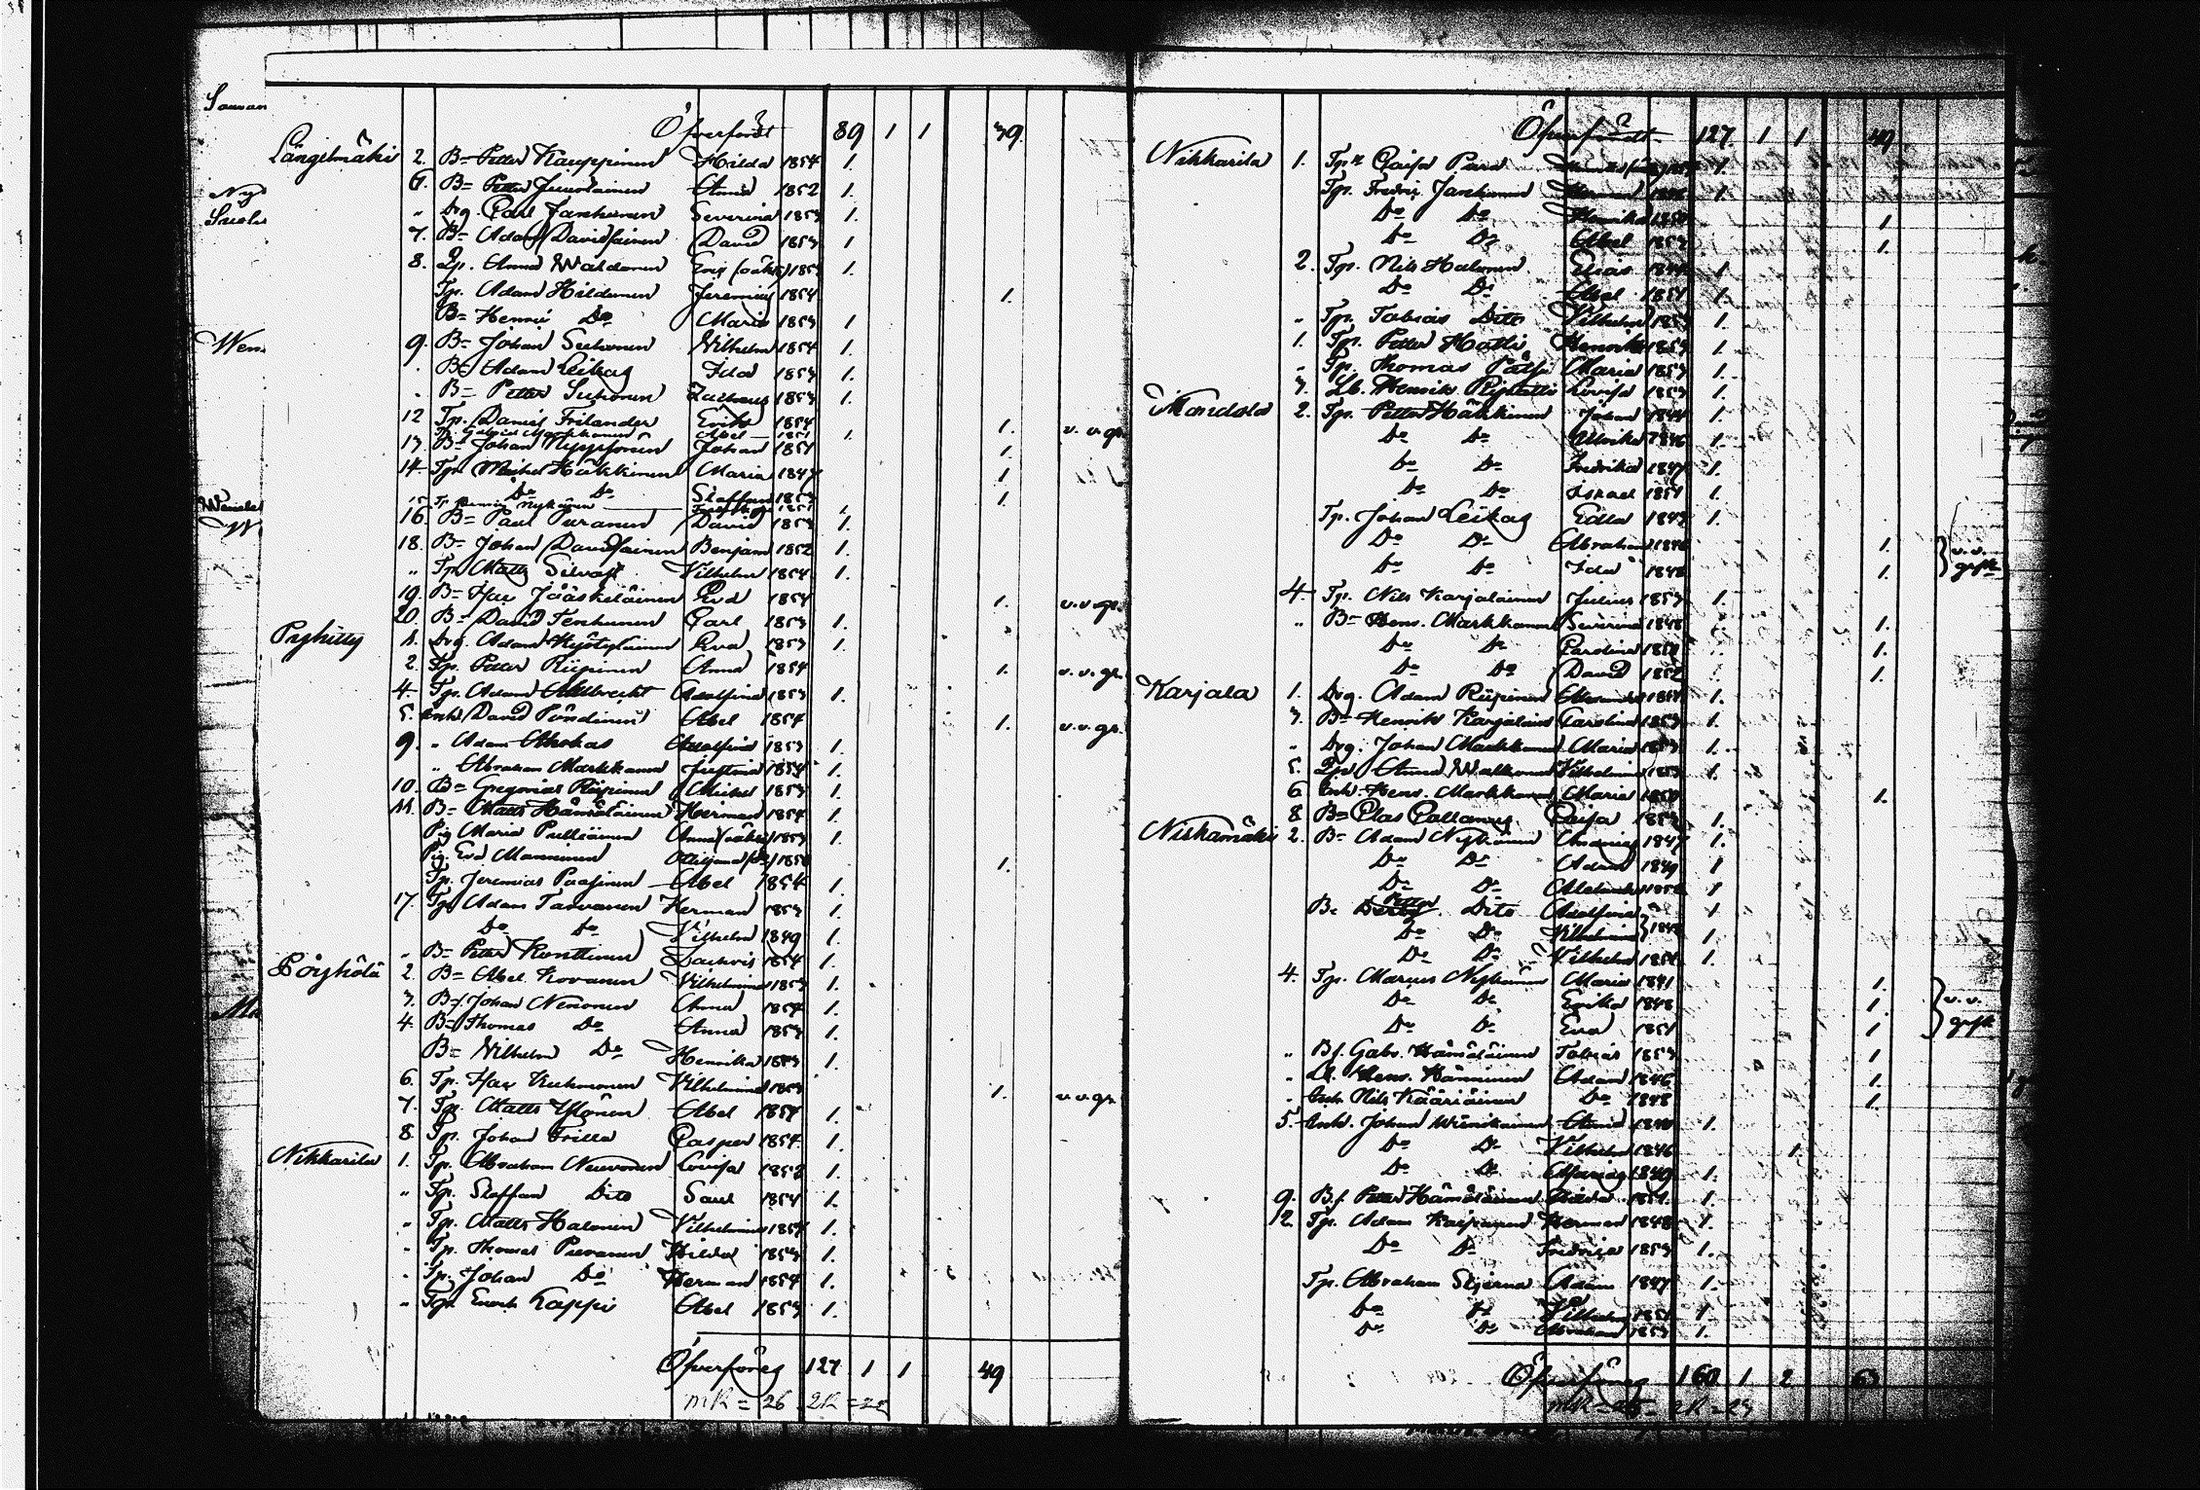 Öfverfördt 89 1 1 39.
Långelmäki 2. B= Petter Kauppinen Hilda 1854 1.
6. B= Petter Anna 1852 1.
" Drg. Carl Janhunen Severina 1853 1.
7. B= Adam Davidsainen David 1853 1
8. Anna Eric 1853 1.
Tp. Adam Hildunen Jeremias 1854 1.
B= Henric Do Maria 1853 1
9. B= Johan Suhonen Wilhelm 1854 1.
B= Adam Leikas Ida 1853 1.
B= Petter Suhonen Zacheus 1853 1.
12 Tp. Daniel Frilander Erik 1854 1. v. v. gr.
Tp. Gabriel Markkanen Abel 1851 1.
13 B= Johan Johan 1851 1.
14 Tp. Michel Häkkinen Maria 1847 1
Do Do Staffan 1853 1
15 Tp. Nykänen 1851 1.
16. B= Paul Puranen David 1853 1.
18. B= Johan Davidsainen Benjam 1852 1.
" Tp. Matts Silvast Vilhelm 1854 1.
19. B= Isac Jääskeläinen Eva 1854 1. v. v. gr.
20. B= David Tenhunen Carl 1853 1.
Pyhitty 1. Drg. Adam Eva 1853 1.
2. Tp. Petter Riipinen Anna 1854 1. v. v. gr.
4. Tp. Adam Ahlbrecht Adolfina 1853 1.
5. Enkl. David Pöndinen Abel 1854 1. v. v. gr.
9. " Adam Ahokas Adolfina 1853 1.
" Abraham Markkanen Justina 1854 1.
10. B= Gregorius Riipinen Michel 1853 1.
11. B= Matts Hämäläinen Herman 1854 1.
Pig. Maria Pulliainen Anna (oäkta) 1853 1.
Pig. Eva Manninen 1850 1.
Tp. Jeremias Paasinen Abel 1854 1.
17. Tp. Adam Tarvanen Herman 1853 1.
Do Do Vilhelm 1849 1.
" B= Petter Konttinen 1854 1.
Pöyhölä 2. B= Abel Kovanen Vilhelmina 1853 1.
3. B/. Johan Nenonen Anna 1854 1.
4. B= Thomas Do Anna 1853 1.
B= Wilhelm Do Henrika 1853 1.
6. Tp. Isac Kuhmonen Vilhelmina 1853 1. v. v. gr.
7. Tp. Matts Ylönen Abel 1854 1.
8. Tp. Johan Frilla Casper 1854 1.
Nikkarila 1. Tp. Abraham Neuvonen Lovisa 1852 1.
" Tp. Staffan Dito Saul 1854 1.
" Tp. Matts Halonen Vilhelmina 1854 1.
" Tp. Thomas Puranen Hilda 1853 1.
" Tp. Johan Do Herman 1854 1.
" Tp. Enoch Kappi Abel 1853 1.
Öfverföres 127 1 1 49
mk = 26 2k = 22
Öfverfördt 127 1 1 49
Nikkarila 1. Caisa Para 1.
Tp. Fredric Janhunen 1.
Do Do Henrika 1850 1
Do Do Abel 1853 1.
2. Tp. Nils Halonen Elias 1.
Do Do Abel 1851 1.
" Tp. Tobias Dito Vilhelm 1853 1.
1. Tp. Petter Henrika 1853 1.
" Tp. Thomas Maria 1853 1.
3. Henrik Lovisa 1853 1.
2. Tp. Petter Häkkinen Johan 1844 1.
Do Do Ulrika 1846 1.
Do Do Fredrika 1847 1.
Do Do Iskael 1851 1.
Tp. Johan Leikas Edla 1843 1.
Do Do Abraham 1846 1.
Do Do Ida 1848 1. v. v. grft
4. Tp. Nils Karjalainen Julius 1853 1.
" B= Hens. Markkanen Severina 1848 1.
Do Do Carolina 1850 1.
Do Do David 1852 1
Karjala 1. Drg. Adam Riipinen 1851 1.
3. B= Henrik Karjalain Carolina 1853 1.
" Drg. Johan Markkanen Maria 1853 1.
5. Anna Vilhelmina 1853 1.
6 Enk. Hens. Markkanen Maria 1850 1.
8 B= Clas Callanus Caisa 1853 1.
Niskamäki 2. B= Adam Nykänen Ananias 1847 1.
Do Do Adam 1849 1
Do Do 1852 1
B= Petter Dito Adolfina 1
Do Do Vilhelmina 1.
Do Do Vilhelm 1851 1.
4. Tp. Marcus Nykänen Maria 1841 1.
Do Do Erika 1848 1. v. v.
Do Do Eva 1851 1 grft
" B/. Gabr. Hämäläinen Tobias 1853 1
" Hens. Hänninen Adam 1846 1.
" Enk. Nils Kääriäinen Do 1848 1.
5. Enk. Johan Anna 1840 1.
Do Do Vilhelm 1846 1.
Do Do 1849 1.
9. B/. Petter Hämäläinen 1851 1.
12. Tp. Adam Herman 1848 1.
Do Do Fredrica 1853 1.
Tp. Abraham Stjerna Adam 1847 1.
Do Do Vilhelm 1851 1
Do Do Abraham 1853 1.
Öfverföres 160 1 2 63